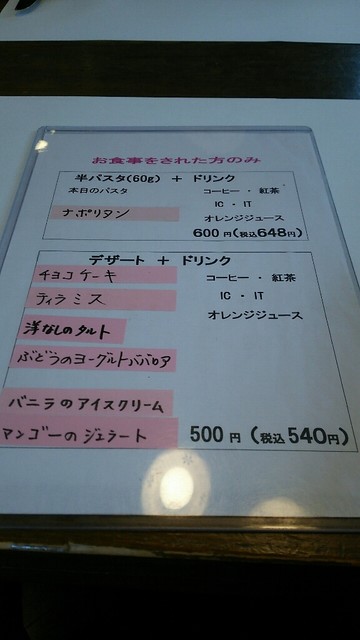 お食事をされた方のみ
半パスタ(60g) + ドリンク
本日のパスタ コーヒー・紅茶
IC・IT
ナポリタン オレンジジュース
600円(税込648円)
デザート + ドリンク
チョコケーキ コーヒー・紅茶
ティラミス IC・IT
オレンジジュース
洋なしのタルト
ぶどうのヨーグルトババロア
バニラのアイスクリーム
マンゴーのジェラート 500円(税込540円)